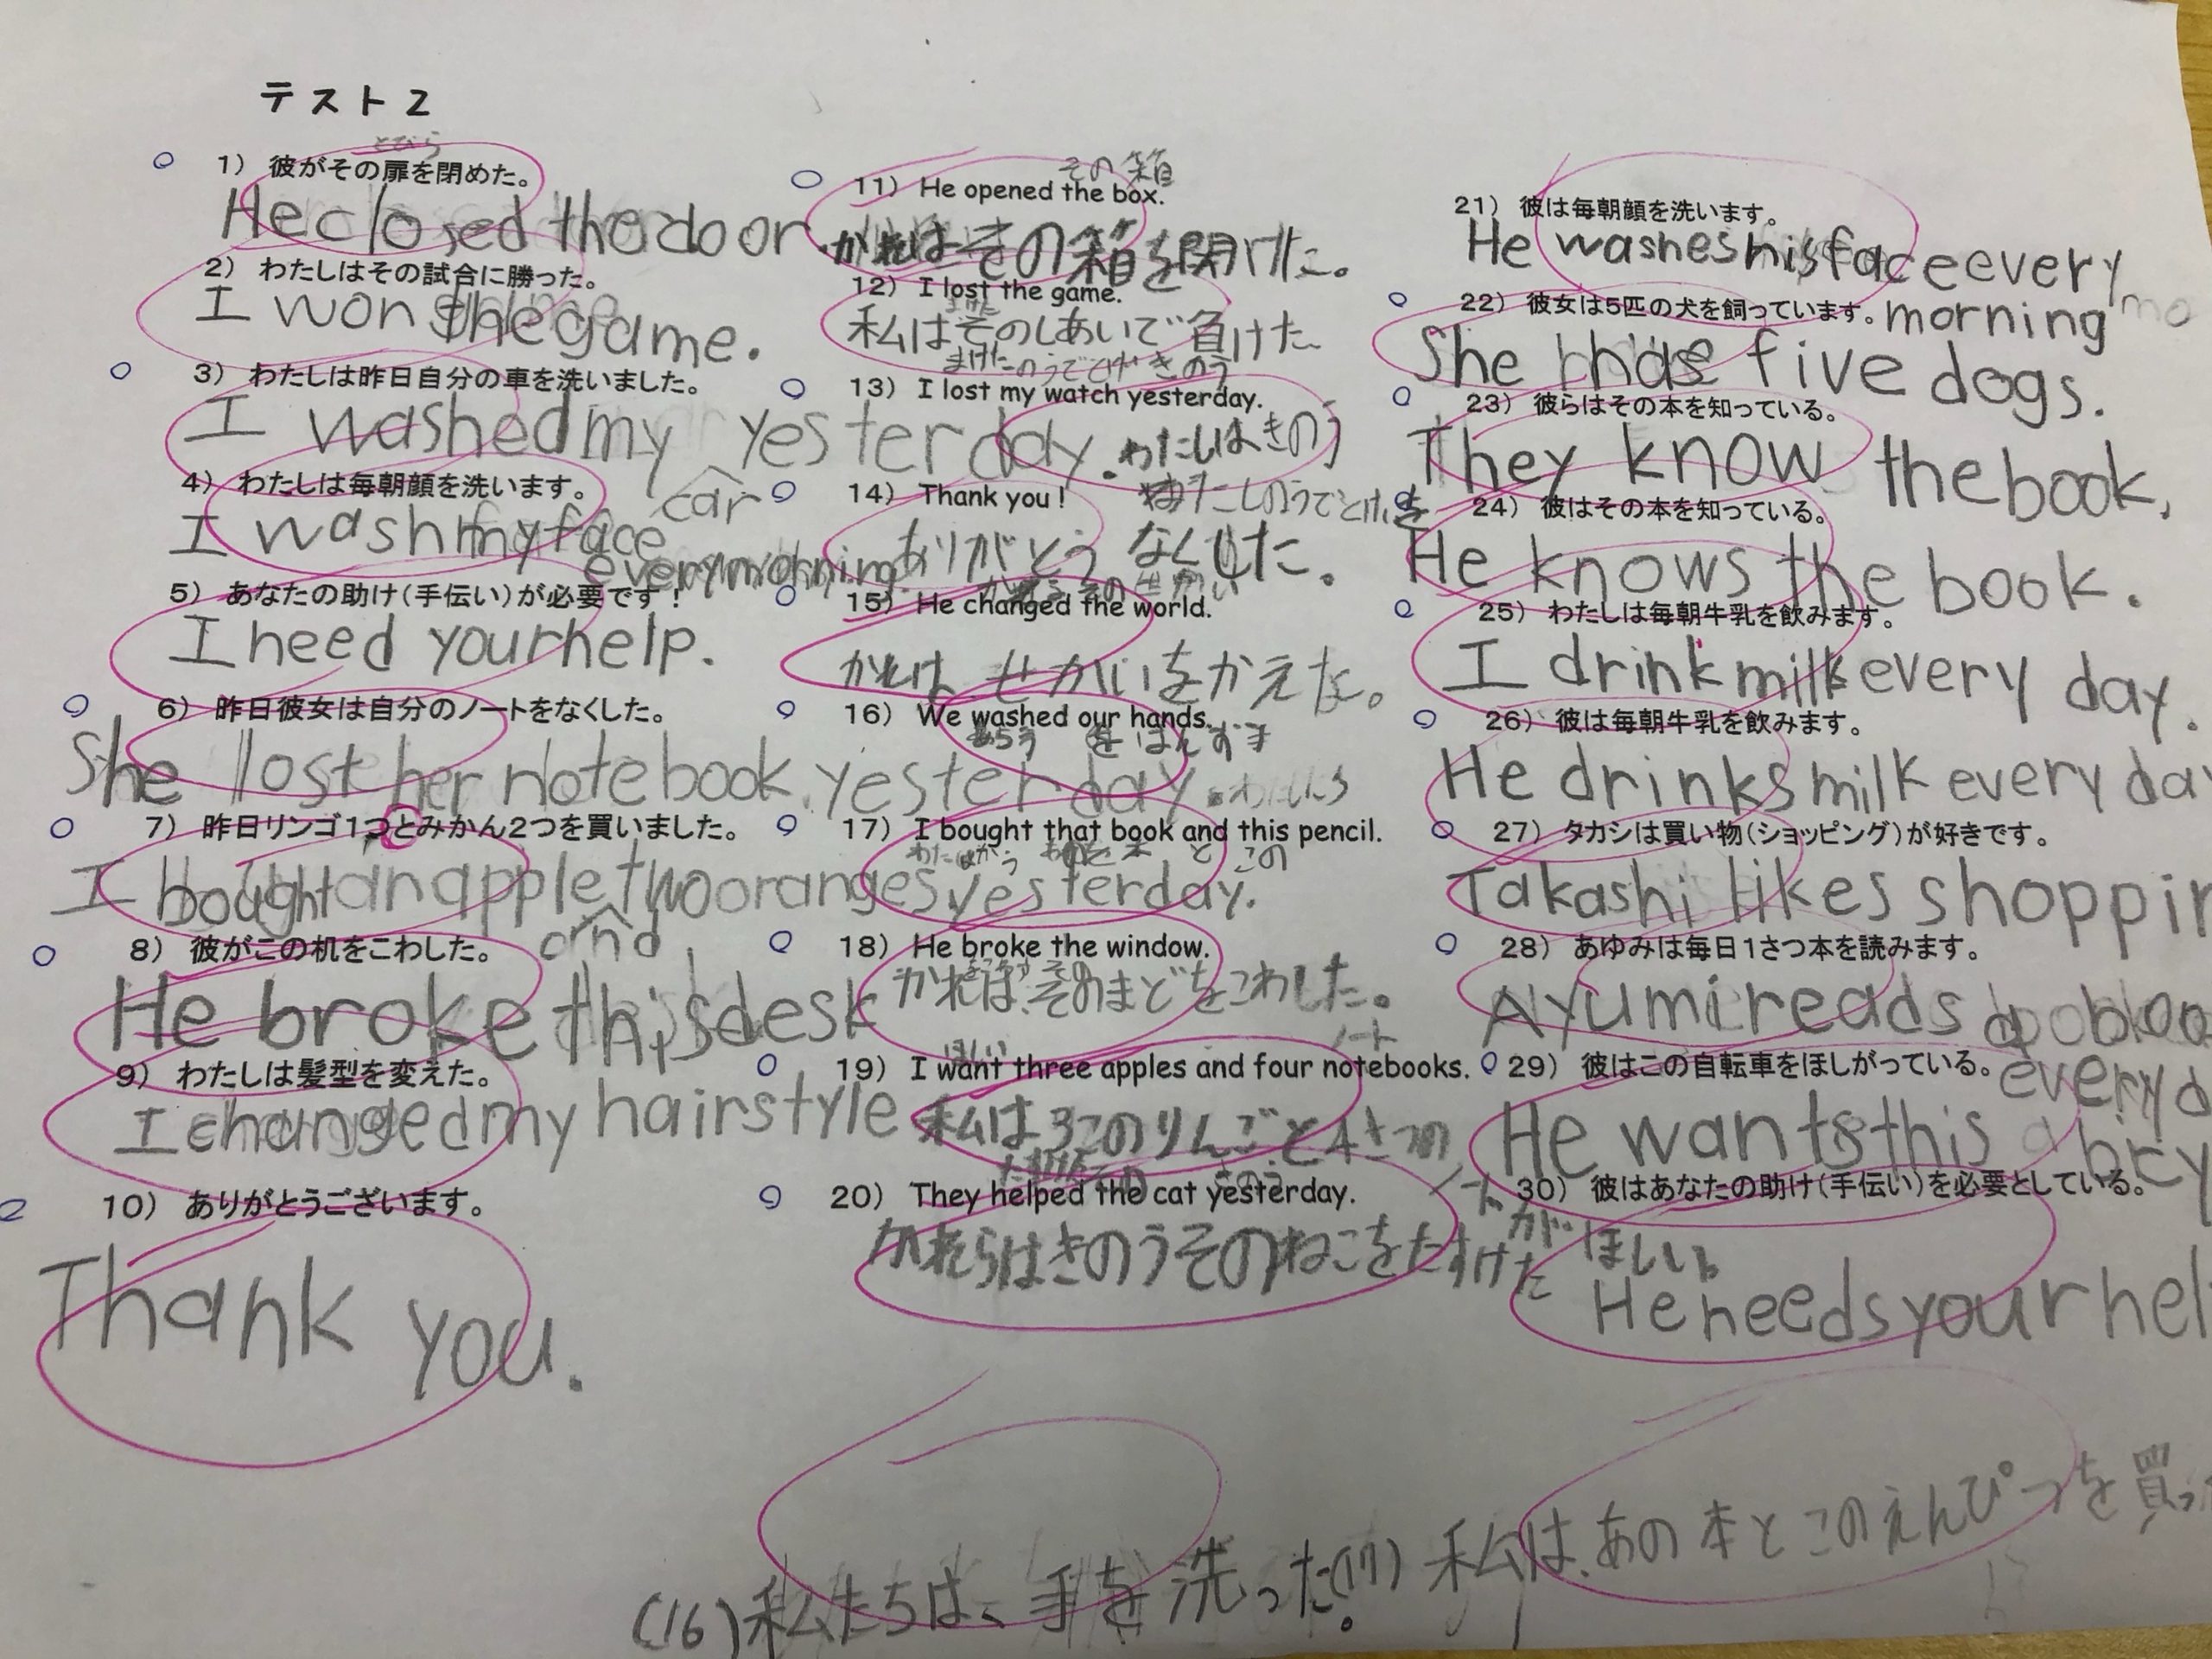 テスト2
とびら
1) 彼がその扉を閉めた。
He closed the door.
2) わたしはその試合に勝った。
I won the game.
3) わたしは昨日自分の車を洗いました。
I washed my yesterday.
car
4) わたしは毎朝顔を洗います。
I wash my face
every morning.
5) あなたの助け(手伝い)が必要です!
I need your help.
6) 昨日彼女は自分のノートをなくした。
She lost her notebook yesterday.
7) 昨日リンゴ1つとみかん2つを買いました。
I bought an apple two oranges yesterday.
and
8) 彼がこの机をこわした。
He broke this desk
9) わたしは髪型を変えた。
I changed my hairstyle
10) ありがとうございます。
Thank you.
その箱
11) He opened the box.
かれはその箱を開けた。
12) I lost the game.
まけた
私はそのしあいで負けた
まけた のうでどけい きのう
13) I lost my watch yesterday.
わたしはきのう
わたしのうでどけいを
なくした。
14) Thank you!
ありがとう
15) He changed the world.
かれは せかいをかえた。
16) We washed our hands.
あらう
17) I bought that book and this pencil.
と この
18) He broke the window.
かれは、そのまどをこわした。
ノート
ほしい
19) I want three apples and four notebooks.
私は3このりんごと4さつの
ノートがほしい。
きのう
20) They helped the cat yesterday.
かれらはきのうそのねこをたすけた
21) 彼は毎朝顔を洗います。
He washes his face every
morning
22) 彼女は5匹の犬を飼っています。
She has five dogs.
23) 彼らはその本を知っている。
They know the book.
24) 彼はその本を知っている。
He knows the book.
25) わたしは毎朝牛乳を飲みます。
I drink milk every day.
26) 彼は毎朝牛乳を飲みます。
He drinks milk every da
27) タカシは買い物(ショッピング)が好きです。
Takashi likes shoppin
28) あゆみは毎日1さつ本を読みます。
Ayumi reads a boo
every d
29) 彼はこの自転車をほしがっている。
He wants this bicy
30) 彼はあなたの助け(手伝い)を必要としている。
He needs your hel
(16) 私たちは、手を洗った。
(17) 私は、あの本とこのえんぴつを買っ